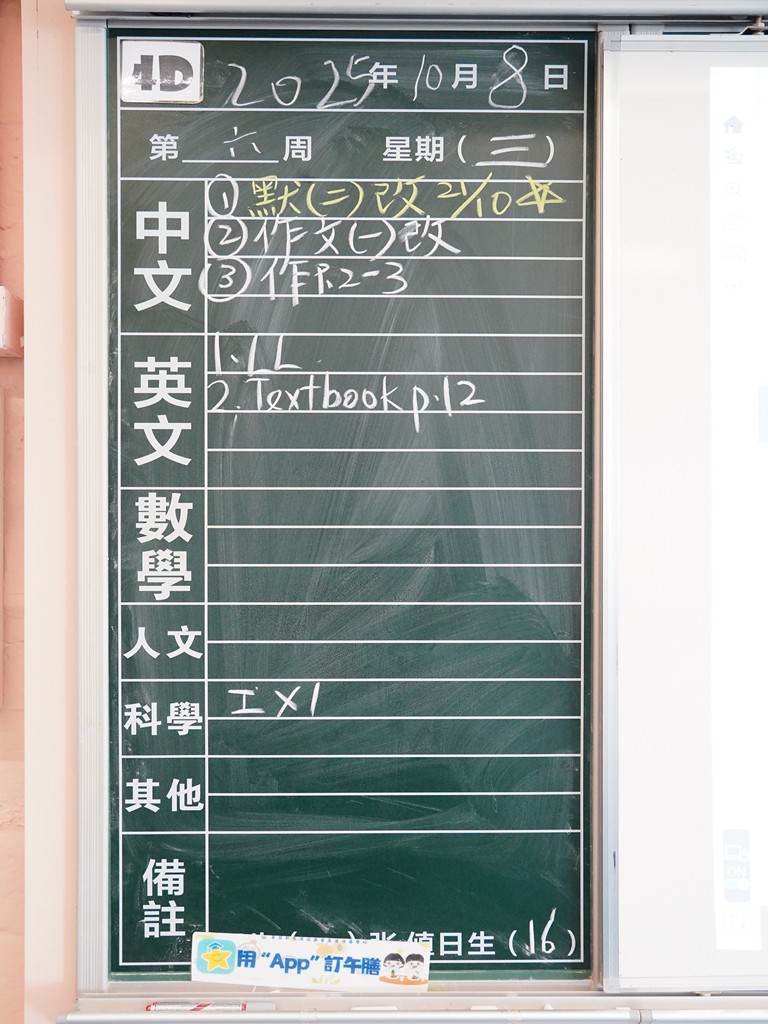 4D 2025年10月8日
第六周 星期(三)
中文
①默(二)改 21/10☆
②作文(一)改
③作P.2-3
英文
1. LL
2. Textbook p.12
數學
人文
科學
工X1
其他
備註
張 值日生(16)
用“App”訂午膳